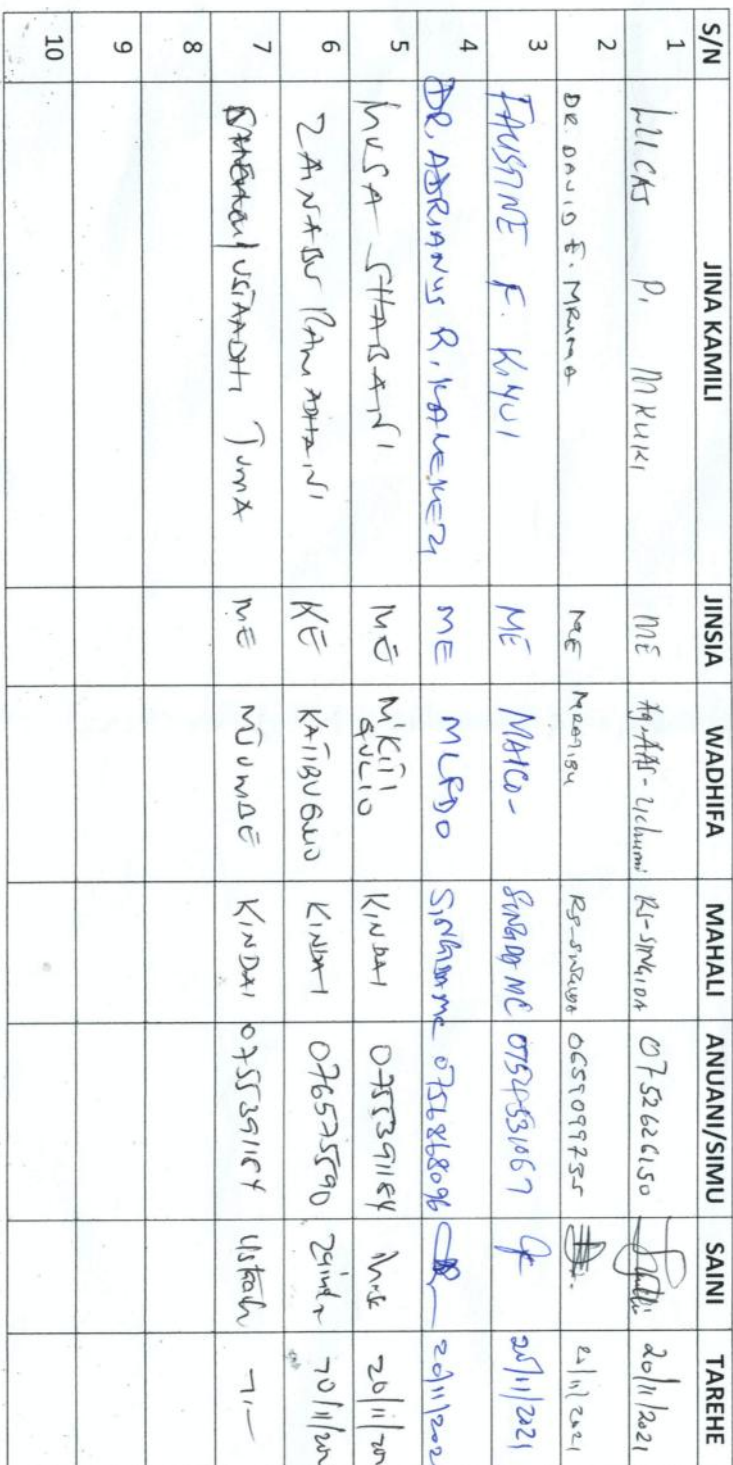 S/N JINA KAMILI JINSIA WADHIFA MAHALI ANUANI/SIMU SAINI TAREHE
1 LUCAS P. MKUKI ME Ag. AAS-Uchumi RS-SINGIDA 0752626150 20/11/2021
2 DR. DAVID E. MRUMA ME MRATIBU RS-SINGIDA 0659099735 20/11/2021
3 FAUSTINE F. KINYUI ME MAICO- SINGIDA MC 0754531067 20/11/2021
4 DR. ADRIANUS R. KALEKEZI ME MLFDO SINGIDA MC 0756868096 20/11/202
5 MUSA SHABANI ME MKITI KINDAI 0755391184 20/11/20
6 ZAINABU RAMADHANI KE KINDAI 0765575590 20/11/20
7 USTAADHI JUMA ME MJUMBE KINDAI 0755391184 Ustadh -11-
8
9
10